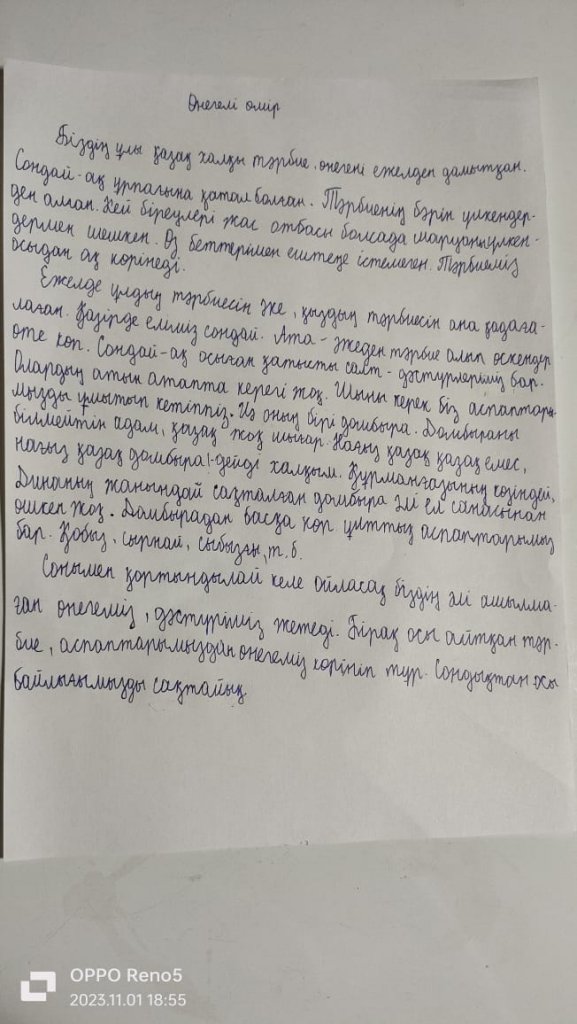 Өнегелі өмір
Біздің ұлы қазақ халқы тәрбие, өнегені ежелден дамытқан.
Сондай-ақ ұрпағына қатал болған. Тәрбиенің бәрін үлкендер-
ден алған. Кей біреулері жас отбасы болсада маруанүлкен-
дермен шешкен. Өз беттерімен ештеңе істемеген. Тәрбиеміз
осыдан ақ көрінеді.
Ежелде ұлдың тәрбиесін әке, қыздың тәрбиесін ана қадаға-
лаған. Қазірде еліміз сондай. Ата-әжеден тәрбие алып өскендер
өте көп. Сондай-ақ осыған қатысты салт-дәстүрлеріміз бар.
Олардың атын атапта керегі жоқ. Шыны керек біз аспаптары-
мызды ұмытып кетіппіз. Из оның бірі домбыра. Домбыраны
білмейтін адам, қазақ жоқ шығар. Нағыз қазақ қазақ емес,
нағыз қазақ домбыра!-дейді халқым. Құрманғазының көзіндей,
Динаның жанындай сақталған домбыра әлі ел санасынан
өшкен жоқ. Домбырадан басқа көп ұлттық аспаптарымыз
бар. Қобыз, сырнай, сыбызғы, т.б.
Сонымен қортындылай келе ойласақ біздің әлі ашылма-
ған өнегеміз, дәстүріміз жетеді. Бірақ осы айтқан тәр-
бие, аспаптарымыздан өнегеміз көрініп тұр. Сондықтан осы
байлығымызды сақтайық.
OPPO Reno5
2023.11.01 18:55